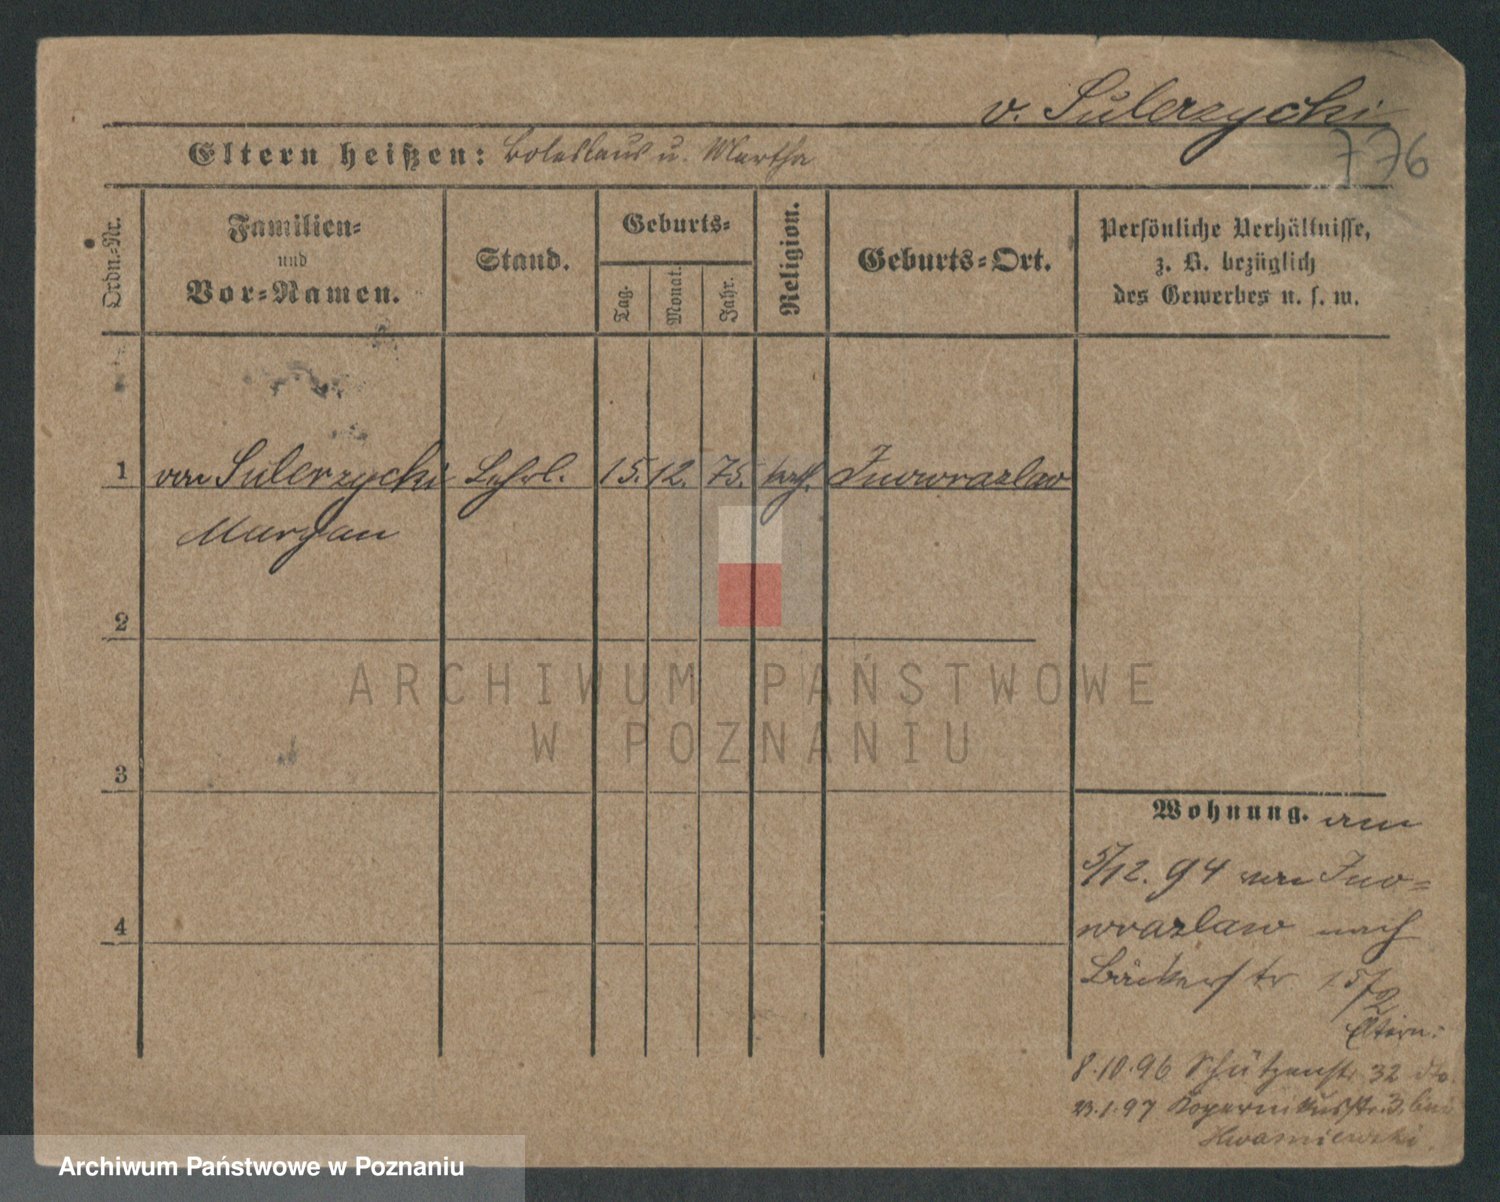 v. Sulerzycki
776
Eltern heißen: Boleslaus u. Martha
Ordn.-Nr.
Familien-
und
Vor-Namen.
Stand.
Geburts-
Tag.
Monat.
Jahr.
Religion.
Geburts-Ort.
Persönliche Verhältnisse,
z. B. bezüglich
des Gewerbes u. s. w.
1 von Sulerzycki Lehrl. 15. 12. 75. kath. Inowrazlaw
Maryan
2
3
4
ARCHIWUM PAŃSTWOWE
W POZNANIU
Wohnung. am
5/12. 94 von Ino-
wrazlaw nach
Bäckerstr 15/2
Eltern.
8.10.96 Schützenstr 32 dto.
23.1.97 Kopernikusstr. 3, bei
Archiwum Państwowe w Poznaniu